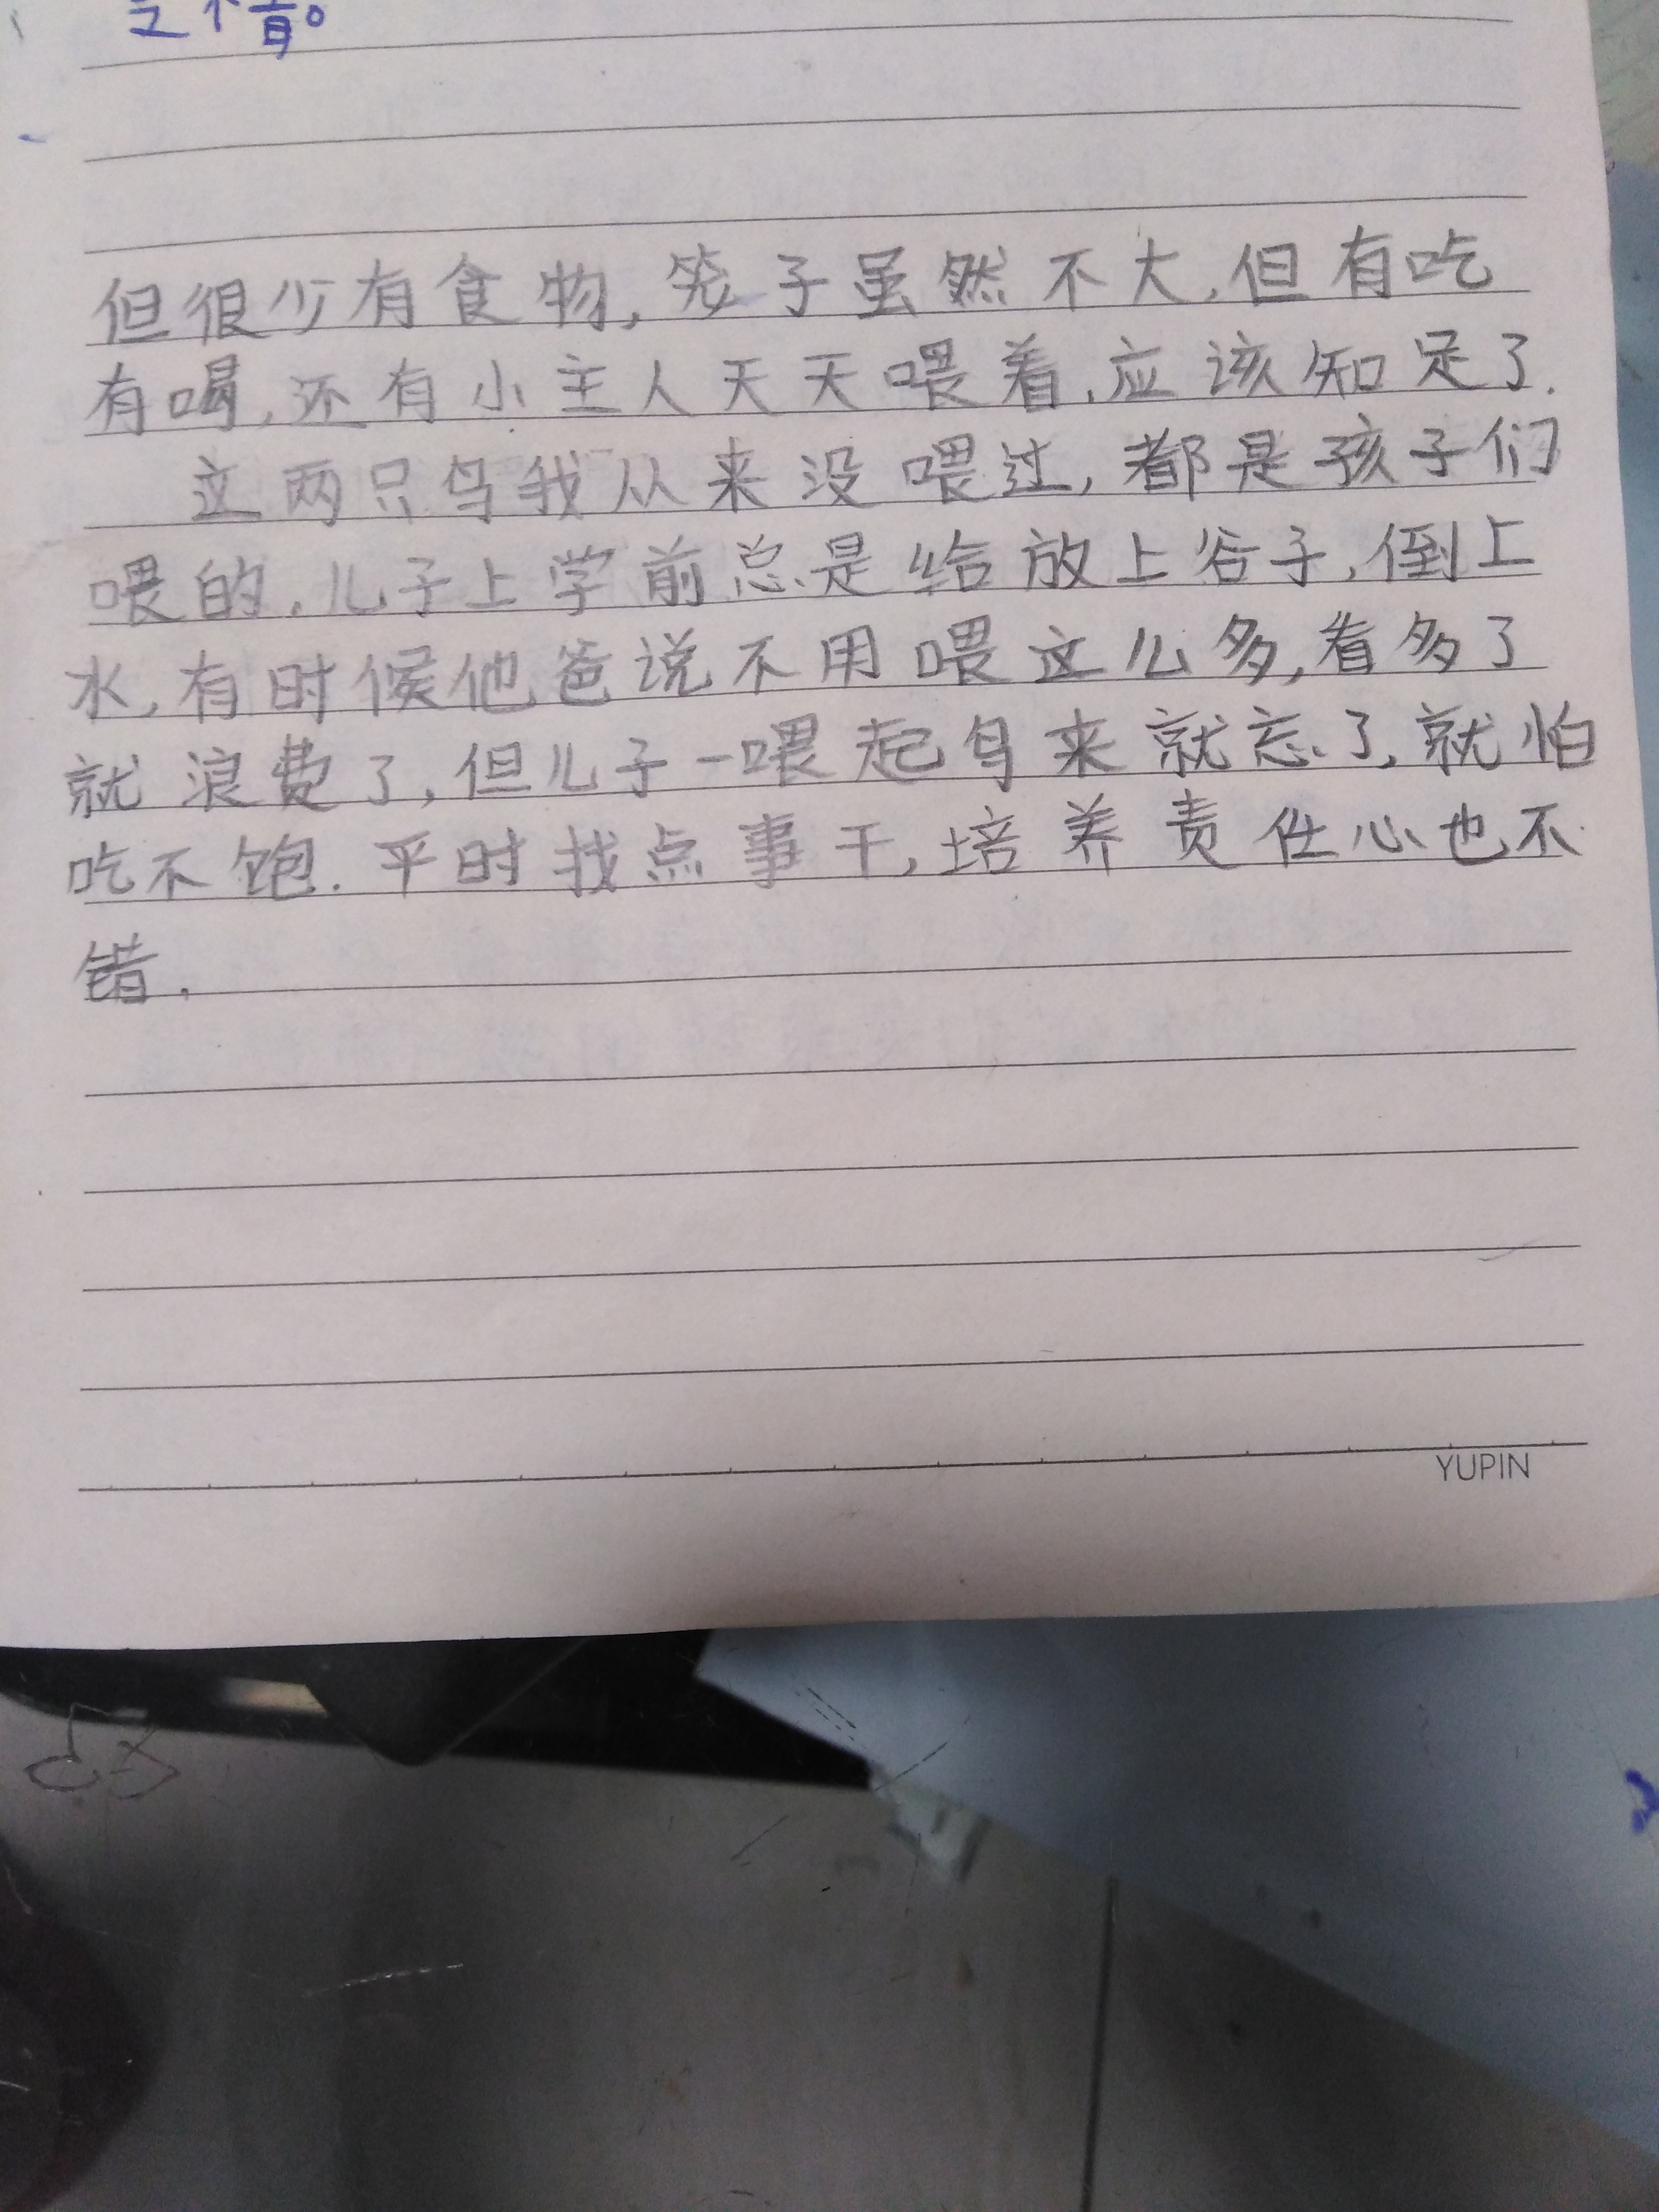 但很少有食物,笼子虽然不大,但有吃
有喝,还有小主人天天喂着,应该知足了.
这两只鸟我从来没喂过,都是孩子们
喂的.儿子上学前总是给放上谷子,倒上
水,有时候他爸说不用喂这么多,着多了
就浪费了,但儿子一喂起鸟来就忘了,就怕
吃不饱.平时找点事干,培养责任心也不
错.
YUPIN